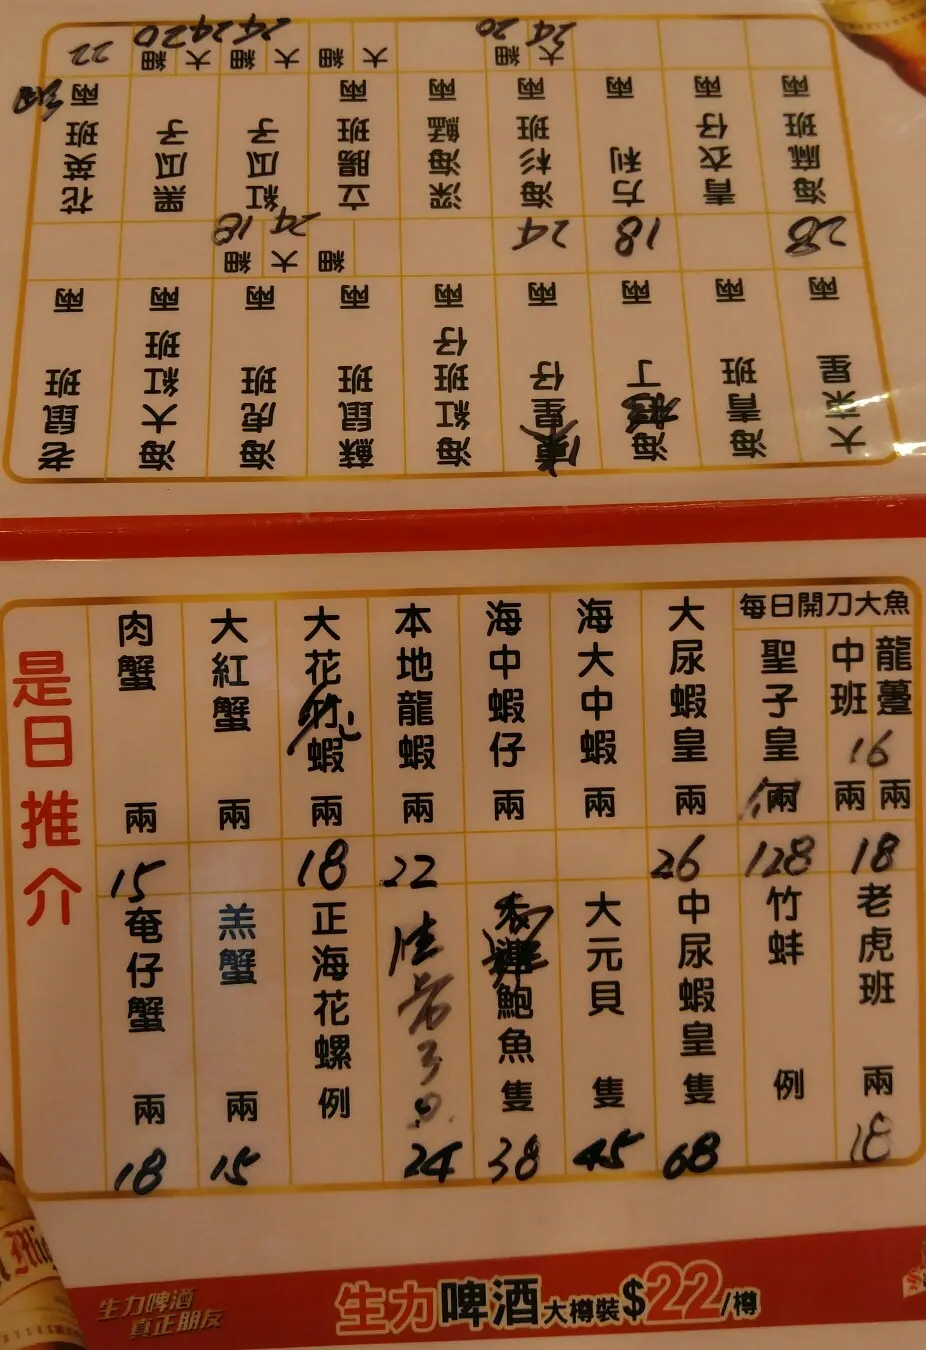 老鼠班 兩
海大紅班 兩
海虎班 兩 細 18 大 24
蘇鼠班 兩 細
海紅班仔 兩
星仔 兩 24
海 丁 兩 18
海青班 兩
大朵星 兩 28
花英班 兩 22
黑瓜子 細 20 大 24
紅瓜子 細 20 大 24
立腸班 兩 細 大
深海艋 兩
海杉班 兩 細 20 大 24
方利 兩
青衣仔 兩
海麻班 兩
每日開刀大魚
龍躉 兩
中班 兩
16
18
聖子皇 兩 128
大尿蝦皇 兩 26
海大中蝦 兩
海中蝦仔 兩
本地龍蝦 兩 22
大花蝦 兩 18
大紅蟹 兩
肉蟹 兩 15
老虎班 兩 18
竹蚌 例
中尿蝦皇 隻 68
大元貝 隻 45
鮑魚 隻 38
24
正海花螺 例
羔蟹 兩 15
奄仔蟹 兩 18
是日推介
生力啤酒
真正朋友
生力啤酒大樽裝$22/樽